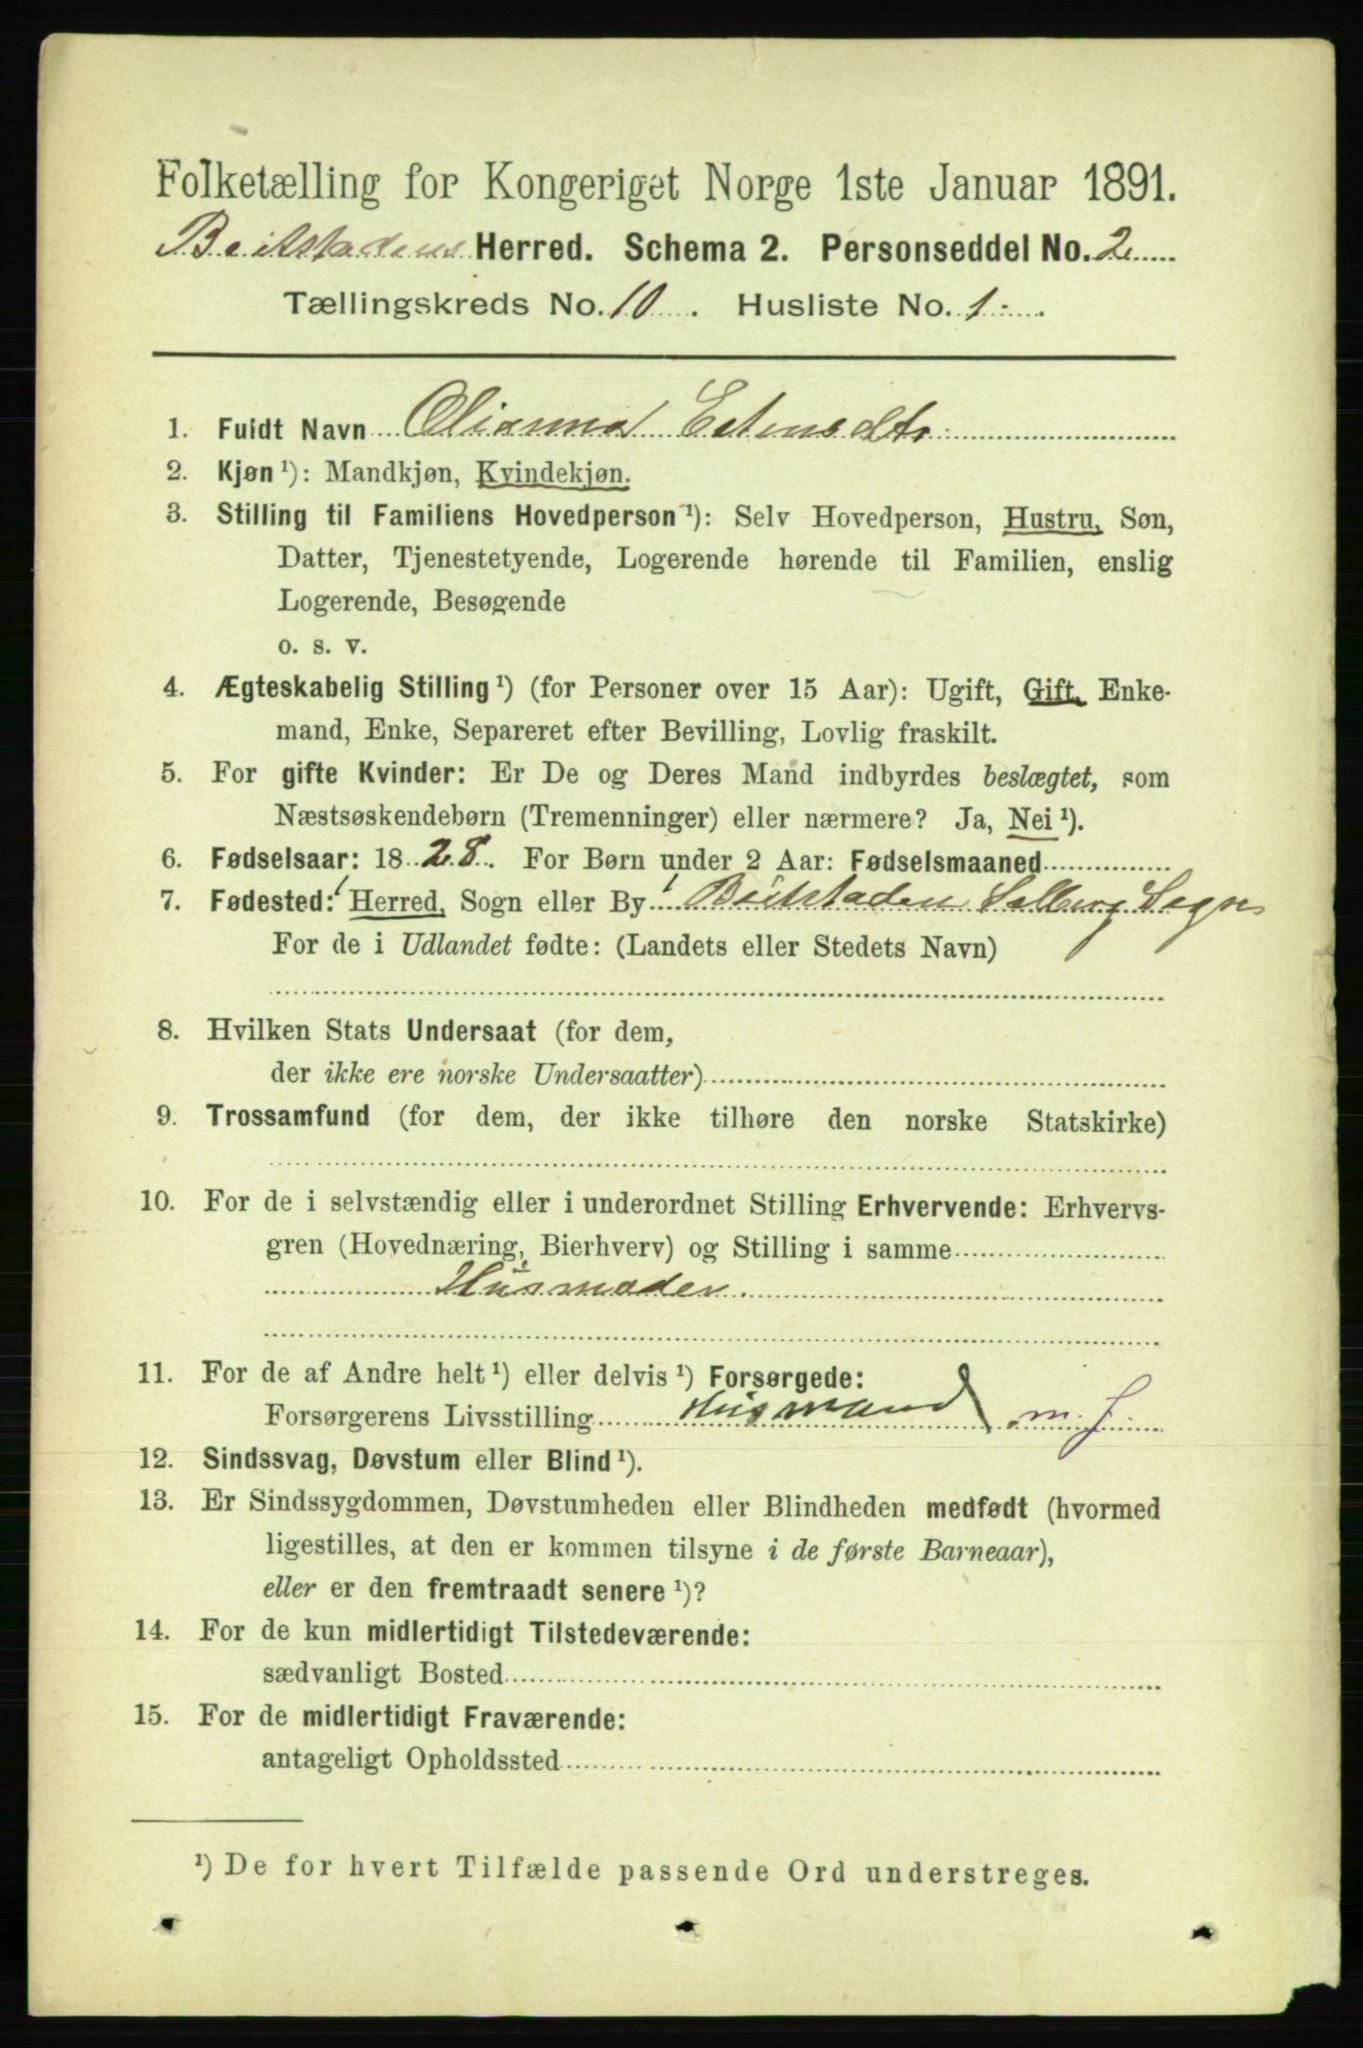 Folketælling for Kongeriget Norge 1ste Januar 1891.
Beitstadens Herred. Schema 2. Personseddel No. 2
Tællingskreds No. 10. Husliste No. 1
1. Fuldt Navn Olianna Estensdtr.
2. Kjøn ¹): Mandkjøn, Kvindekjøn.
3. Stilling til Familiens Hovedperson ¹): Selv Hovedperson, Hustru, Søn,
Datter, Tjenestetyende, Logerende hørende til Familien, enslig
Logerende, Besøgende
o. s. v.
4. Ægteskabelig Stilling ¹) (for Personer over 15 Aar): Ugift, Gift, Enke-
mand, Enke, Separeret efter Bevilling, Lovlig fraskilt.
5. For gifte Kvinder: Er De og Deres Mand indbyrdes beslægtet, som
Næstsøskendebørn (Tremenninger) eller nærmere? Ja, Nei ¹).
6. Fødselsaar: 1828. For Børn under 2 Aar: Fødselsmaaned
7. Fødested: Herred, Sogn eller By Beitstaden Solberg Sogn
For de i Udlandet fødte: (Landets eller Stedets Navn)
8. Hvilken Stats Undersaat (for dem,
der ikke ere norske Undersaatter)
9. Trossamfund (for dem, der ikke tilhøre den norske Statskirke)
10. For de i selvstændig eller i underordnet Stilling Erhvervende: Erhvervs-
gren (Hovednæring, Bierhverv) og Stilling i samme
Husmoder
11. For de af Andre helt ¹) eller delvis ¹) Forsørgede:
Forsørgerens Livsstilling Husmand m. J.
12. Sindssvag, Døvstum eller Blind ¹).
13. Er Sindssygdommen, Døvstumheden eller Blindheden medfødt (hvormed
ligestilles, at den er kommen tilsyne i de første Barneaar),
eller er den fremtraadt senere ¹)?
14. For de kun midlertidigt Tilstedeværende:
sædvanligt Bosted
15. For de midlertidigt Fraværende:
antageligt Opholdssted
¹) De for hvert Tilfælde passende Ord understreges.